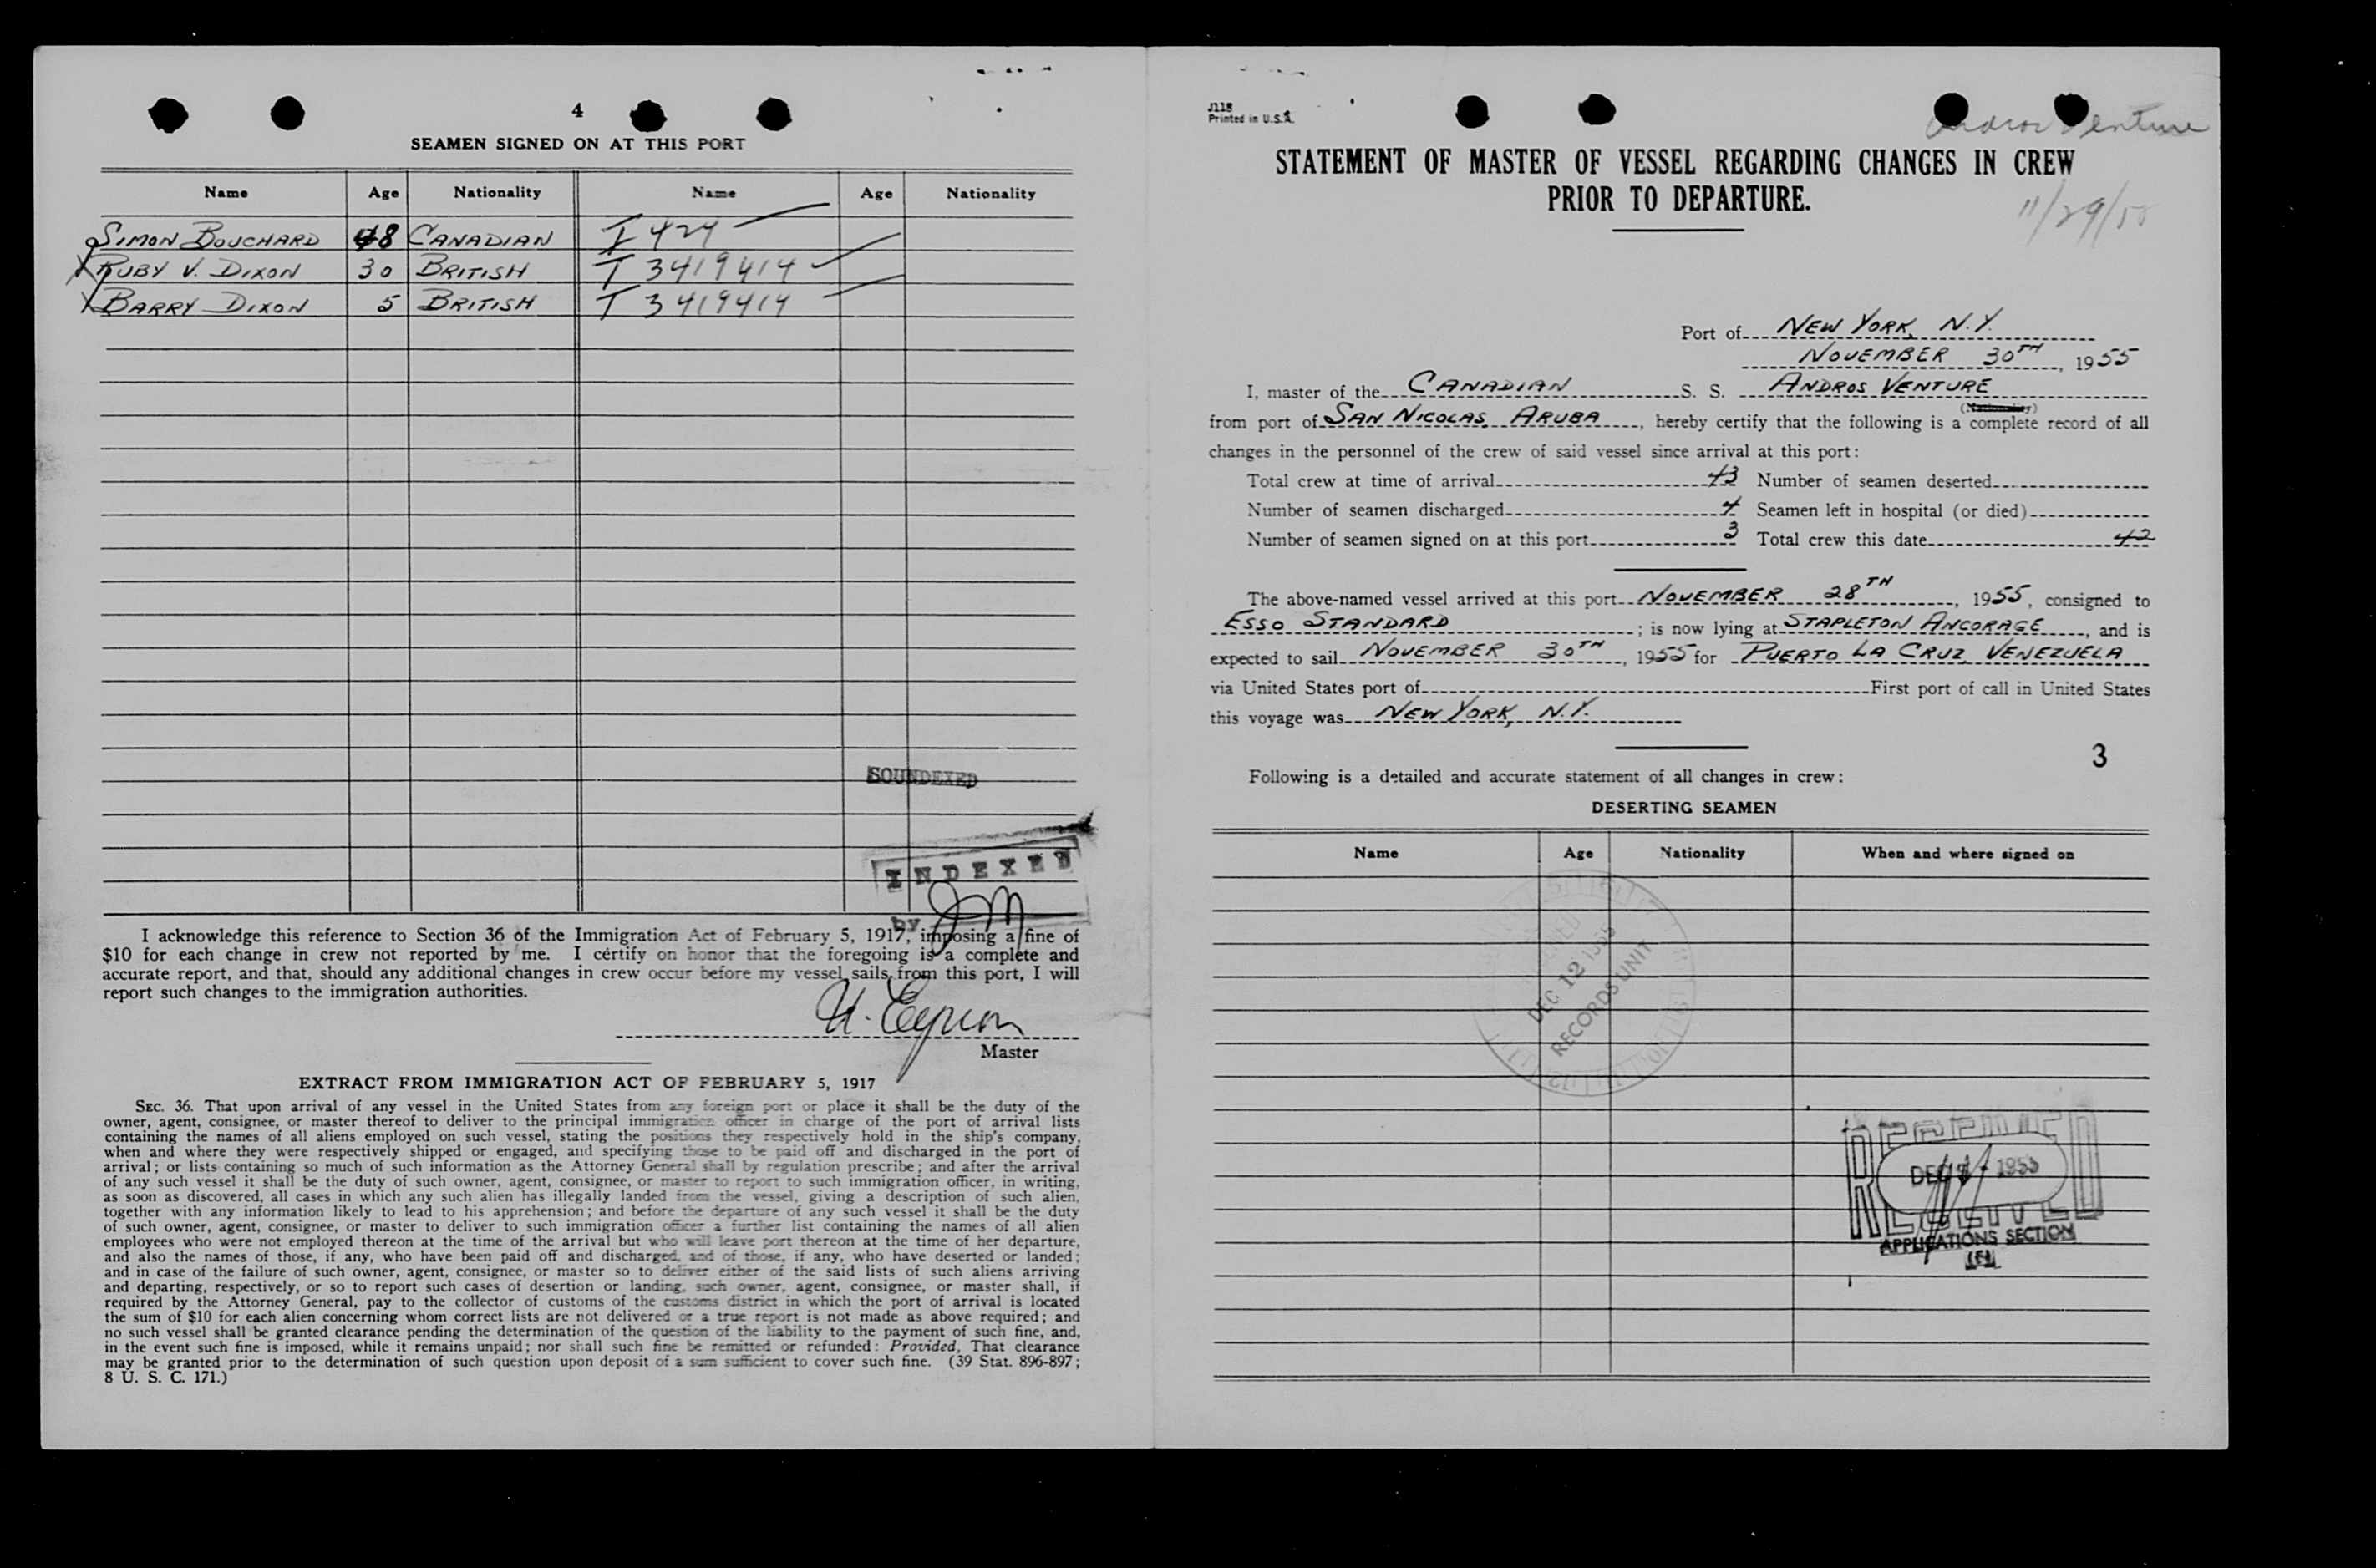 4
SEAMEN SIGNED ON AT THIS PORT
Name Age Nationality Name Age Nationality
SIMON BOUCHARD 48 CANADIAN I 424
X RUBY V. DIXON 30 BRITISH T 3419414
X BARRY DIXON 5 BRITISH T 3419414
SOUNDEXED
INDEXED
by JM
I acknowledge this reference to Section 36 of the Immigration Act of February 5, 1917, imposing a fine of
$10 for each change in crew not reported by me. I certify on honor that the foregoing is a complete and
accurate report, and that, should any additional changes in crew occur before my vessel sails from this port, I will
report such changes to the immigration authorities.
Master
EXTRACT FROM IMMIGRATION ACT OF FEBRUARY 5, 1917
SEC. 36. That upon arrival of any vessel in the United States from any foreign port or place it shall be the duty of the
owner, agent, consignee, or master thereof to deliver to the principal immigration officer in charge of the port of arrival lists
containing the names of all aliens employed on such vessel, stating the positions they respectively hold in the ship's company,
when and where they were respectively shipped or engaged, and specifying those to be paid off and discharged in the port of
arrival; or lists containing so much of such information as the Attorney General shall by regulation prescribe; and after the arrival
of any such vessel it shall be the duty of such owner, agent, consignee, or master to report to such immigration officer, in writing,
as soon as discovered, all cases in which any such alien has illegally landed from the vessel, giving a description of such alien,
together with any information likely to lead to his apprehension; and before the departure of any such vessel it shall be the duty
of such owner, agent, consignee, or master to deliver to such immigration officer a further list containing the names of all alien
employees who were not employed thereon at the time of the arrival but who will leave port thereon at the time of her departure,
and also the names of those, if any, who have been paid off and discharged, and of those, if any, who have deserted or landed;
and in case of the failure of such owner, agent, consignee, or master so to deliver either of the said lists of such aliens arriving
and departing, respectively, or so to report such cases of desertion or landing, such owner, agent, consignee, or master shall, if
required by the Attorney General, pay to the collector of customs of the customs district in which the port of arrival is located
the sum of $10 for each alien concerning whom correct lists are not delivered or a true report is not made as above required; and
no such vessel shall be granted clearance pending the determination of the question of the liability to the payment of such fine, and,
in the event such fine is imposed, while it remains unpaid; nor shall such fine be remitted or refunded: Provided, That clearance
may be granted prior to the determination of such question upon deposit of a sum sufficient to cover such fine. (39 Stat. 896-897;
8 U. S. C. 171.)
J118
Printed in U.S.A.
Andros Venture
STATEMENT OF MASTER OF VESSEL REGARDING CHANGES IN CREW
PRIOR TO DEPARTURE.
11/29/55
Port of NEW YORK, N.Y.
NOVEMBER 30TH, 1955
I, master of the CANADIAN S. S. ANDROS VENTURE
(Nationality)
from port of SAN NICOLAS, ARUBA, hereby certify that the following is a complete record of all
changes in the personnel of the crew of said vessel since arrival at this port:
Total crew at time of arrival 43 Number of seamen deserted
Number of seamen discharged 4 Seamen left in hospital (or died)
Number of seamen signed on at this port 3 Total crew this date 42
The above-named vessel arrived at this port NOVEMBER 28TH, 1955, consigned to
ESSO STANDARD; is now lying at STAPLETON ANCORAGE, and is
expected to sail NOVEMBER 30TH, 1955 for PUERTO LA CRUZ, VENEZUELA
via United States port of First port of call in United States
this voyage was NEW YORK, N.Y.
3
Following is a detailed and accurate statement of all changes in crew:
DESERTING SEAMEN
Name Age Nationality When and where signed on
DEC 12 1955
RECORDS UNIT
RECEIVED
DEC 1955
APPLICATIONS SECTION